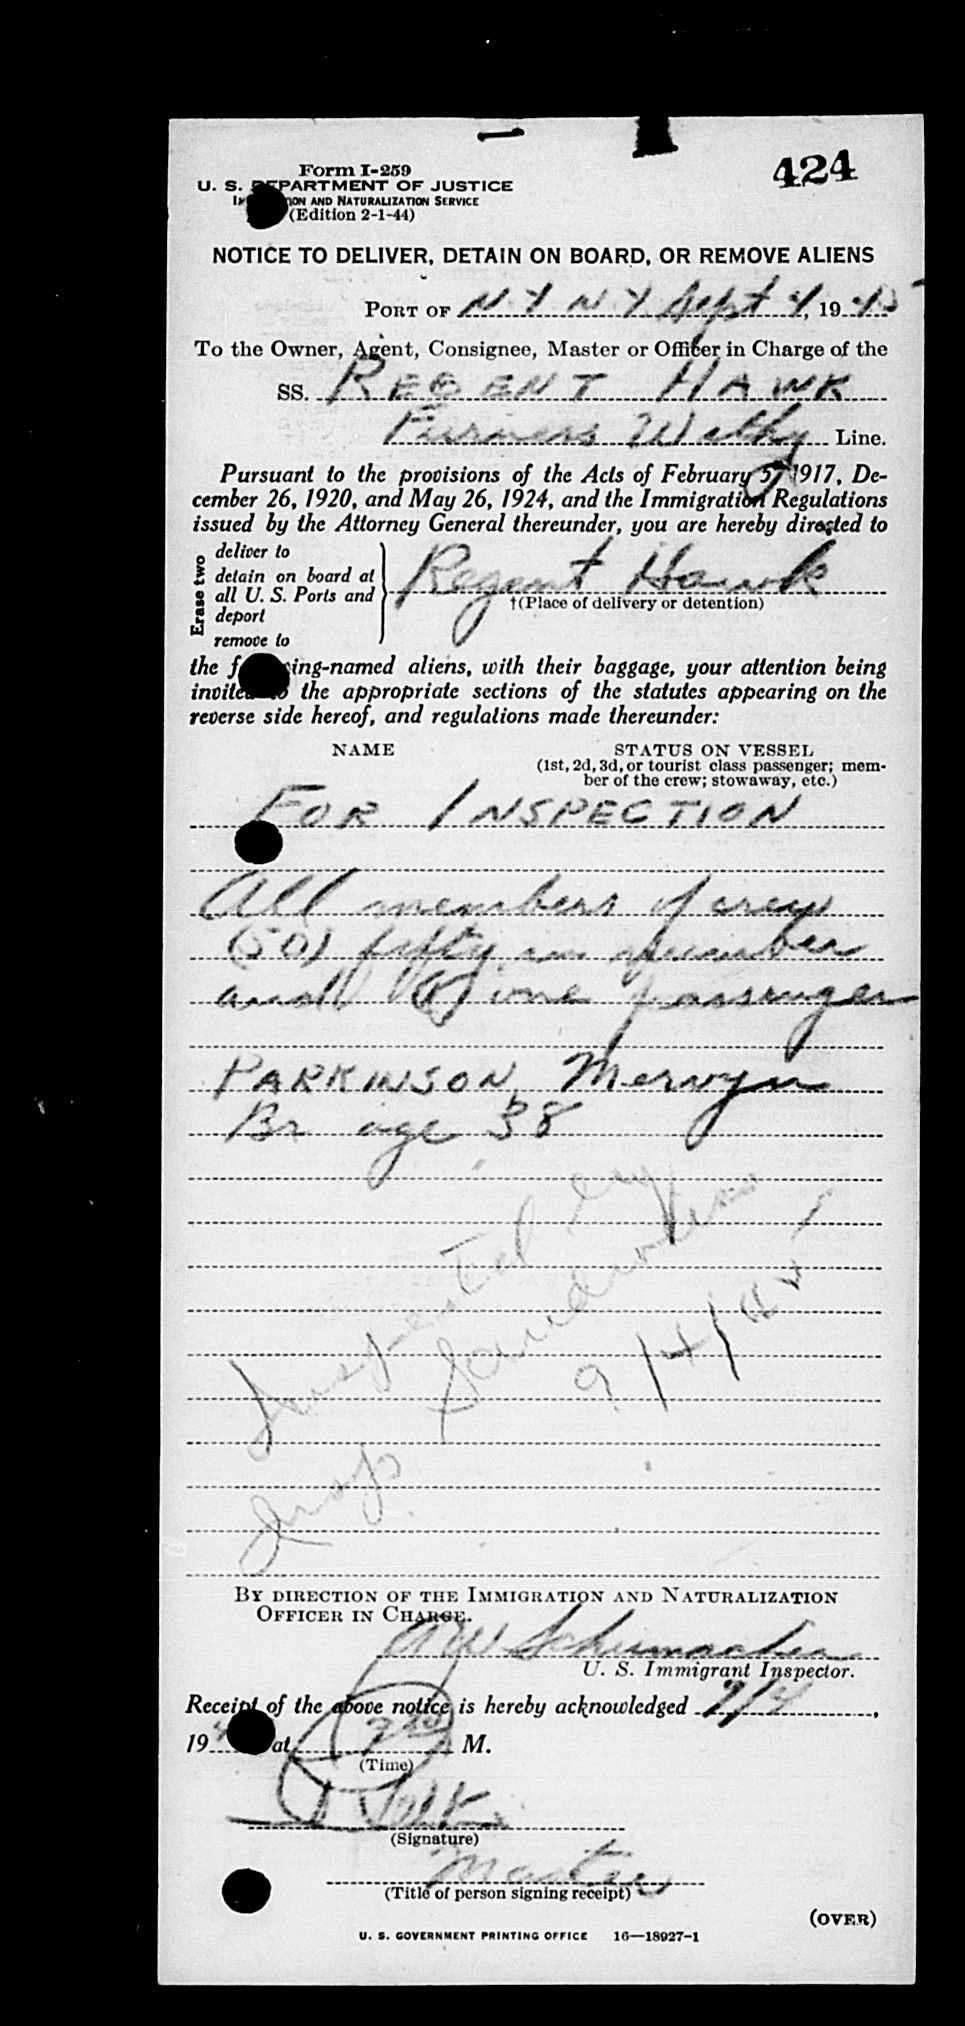 Form I-259
424
U. S. DEPARTMENT OF JUSTICE
ION AND NATURALIZATION SERVICE
(Edition 2-1-44)
NOTICE TO DELIVER, DETAIN ON BOARD, OR REMOVE ALIENS
PORT OF N Y N Y Sept 4, 1945
To the Owner, Agent, Consignee, Master or Officer in Charge of the
SS. REGENT HAWK
Furness Withy Line.
Pursuant to the provisions of the Acts of February 5, 1917, De-
cember 26, 1920, and May 26, 1924, and the Immigration Regulations
issued by the Attorney General thereunder, you are hereby directed to
Erase two
deliver to
detain on board at
all U. S. Ports and
deport
remove to
Regent Hawk
†(Place of delivery or detention)
the following-named aliens, with their baggage, your attention being
invited to the appropriate sections of the statutes appearing on the
reverse side hereof, and regulations made thereunder:
NAME STATUS ON VESSEL
(1st, 2d, 3d, or tourist class passenger; mem-
ber of the crew; stowaway, etc.)
FOR INSPECTION
All members of crew
(50) fifty in number
and (1) one passenger
PARKINSON, Mervyn
Br age 38
Inspected by
9/4/45
Insp.
BY DIRECTION OF THE IMMIGRATION AND NATURALIZATION
OFFICER IN CHARGE.
Schumacher
U. S. Immigrant Inspector.
Receipt of the above notice is hereby acknowledged 9/4,
19 4 at M.
(Time)
(Signature)
Master
(Title of person signing receipt)
(OVER)
U. S. GOVERNMENT PRINTING OFFICE 16—18927-1